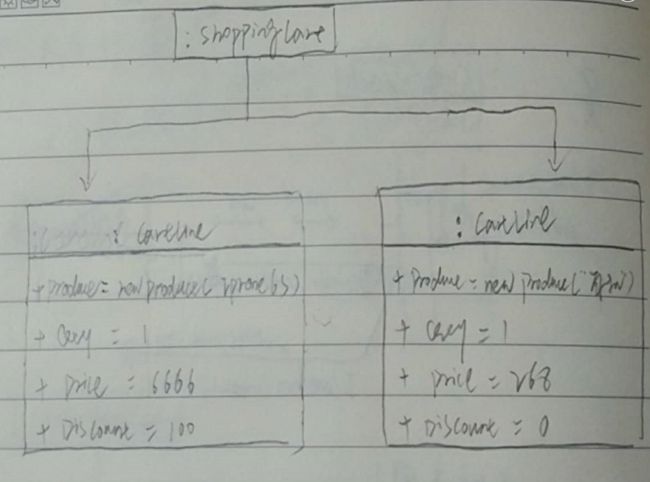 : shoppingCart
: CartLine
+ produce = new produce("iphone 6s")
+ Qty = 1
+ price = 6666
+ Discount = 100
: CartLine
+ produce = new produce(
+ Qty = 1
+ price = 268
+ Discount = 0